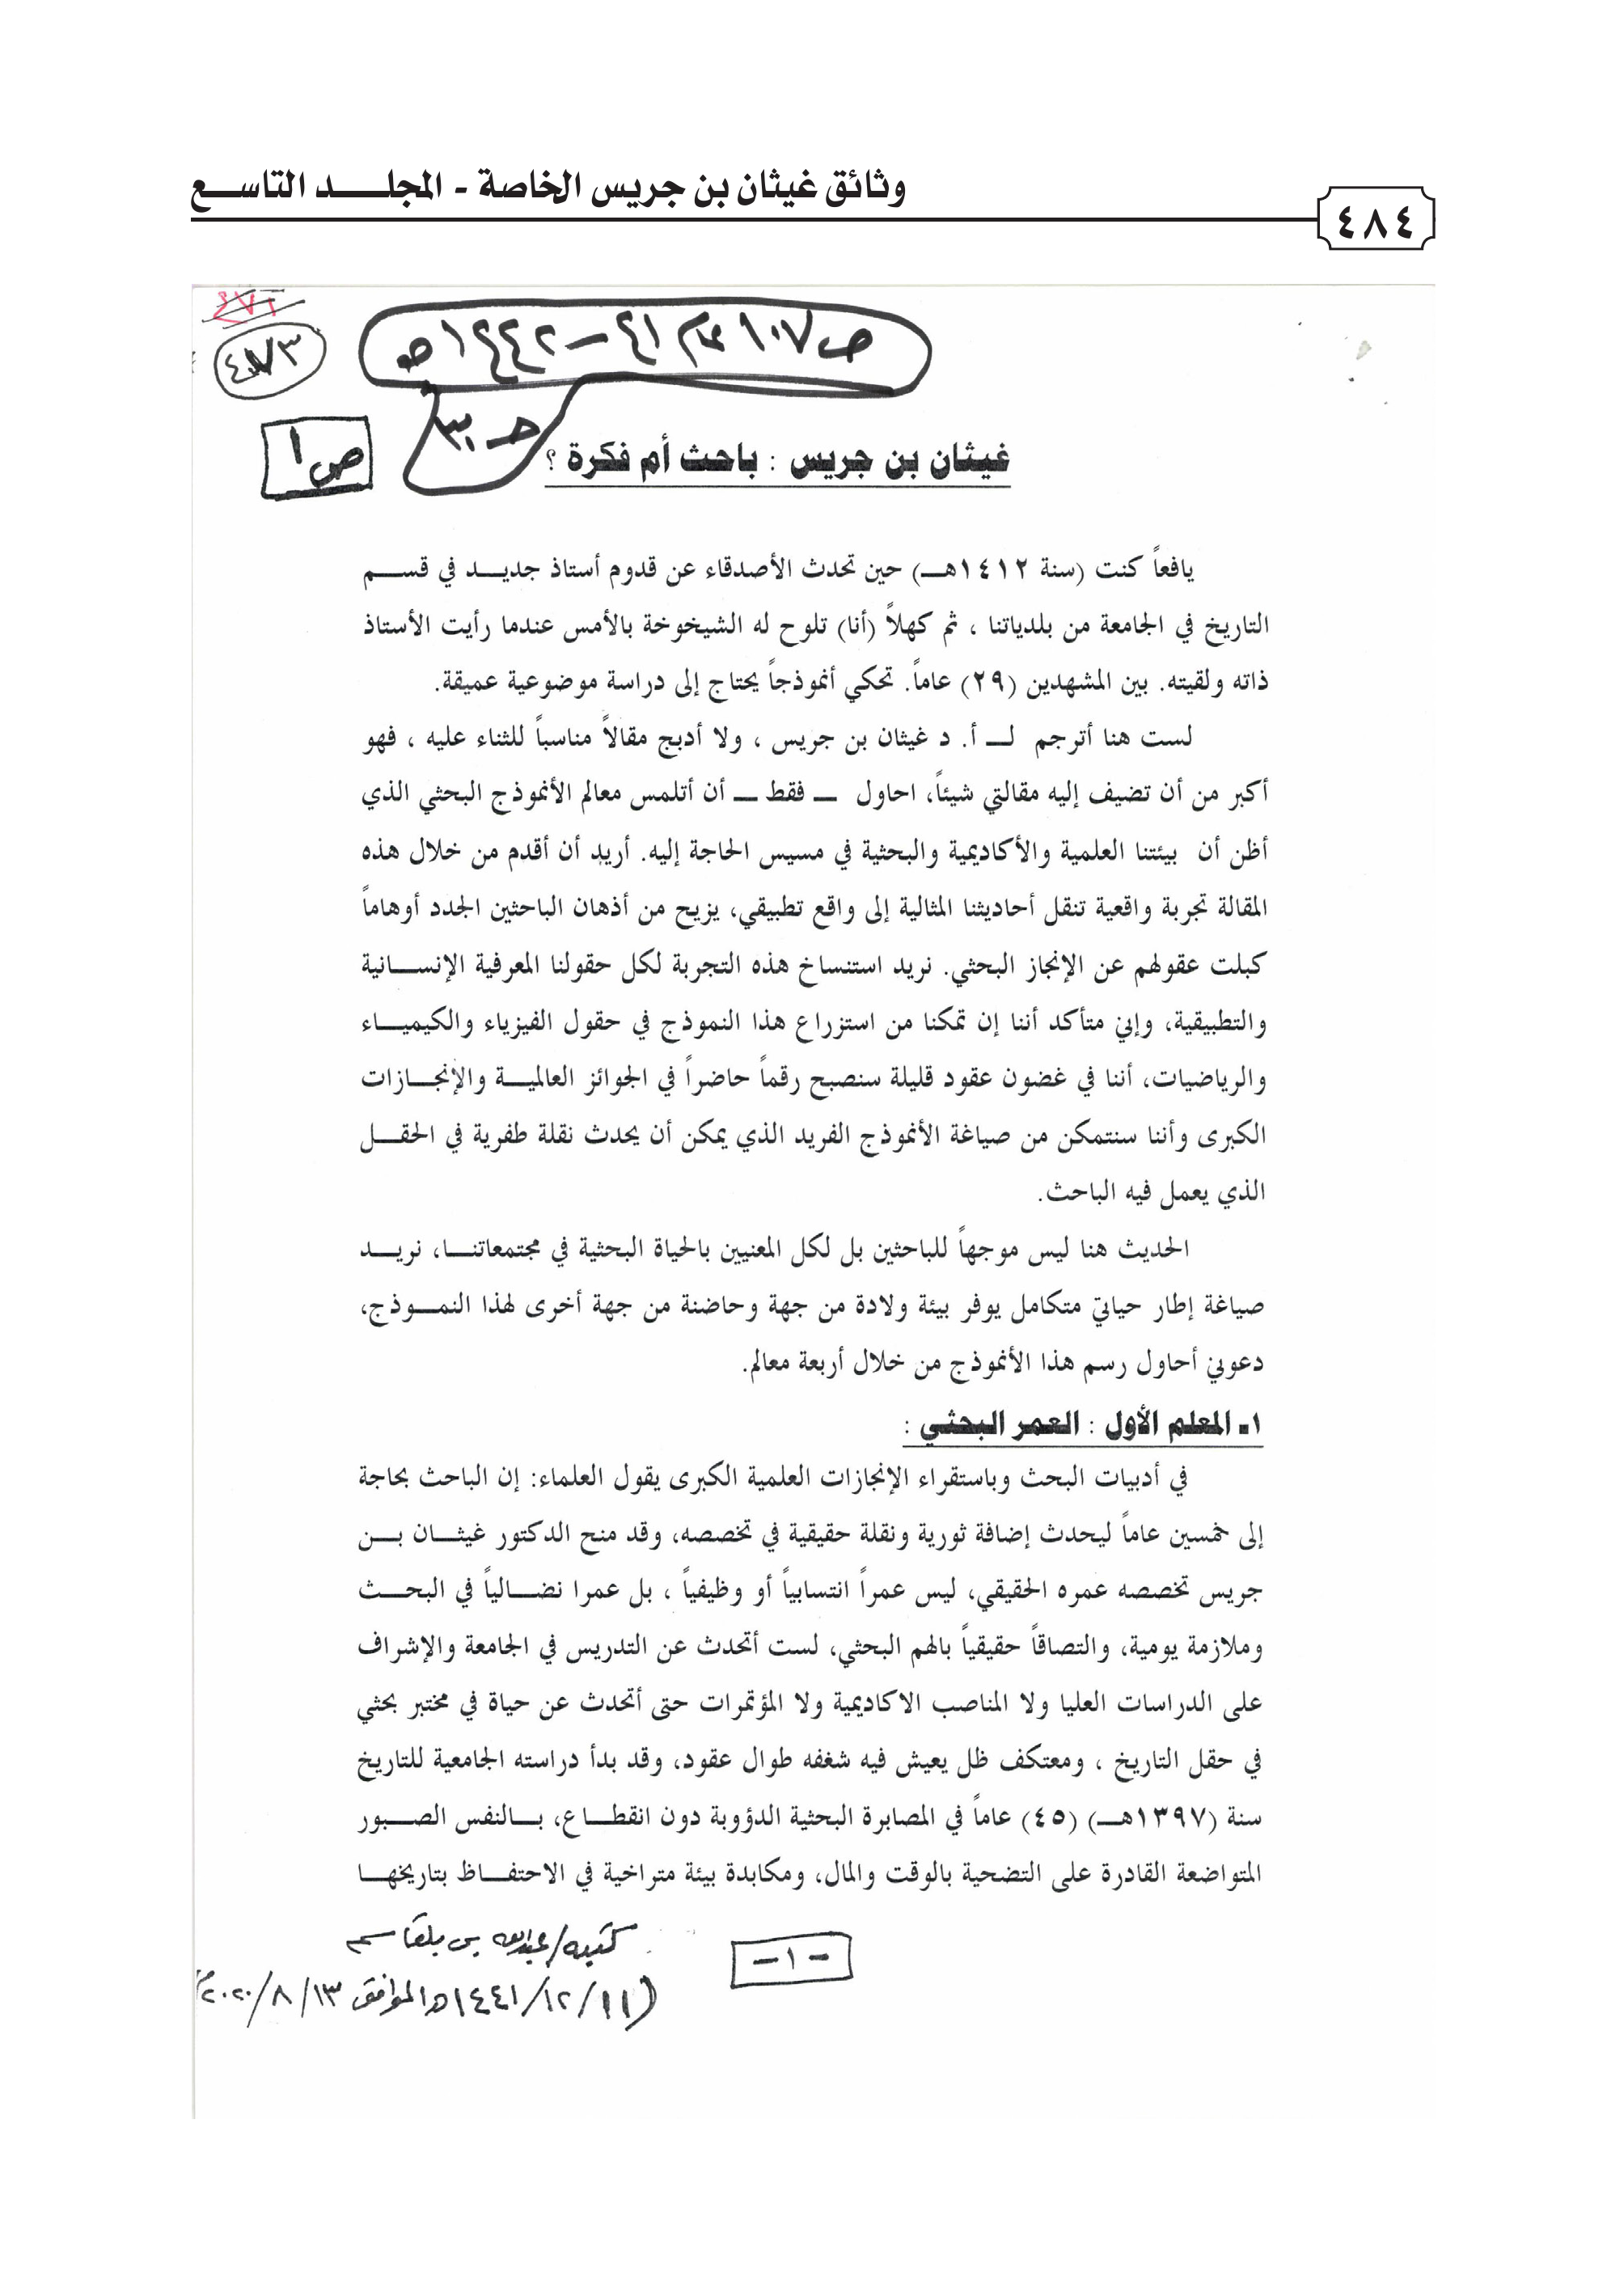 وثائق غيثان بن جريس الخاصة - المجلد التاسع
٤٨٤
ص١٠٧ عام ٤١-١٤٤٢هـ
حـ٣٠
ص١
غيثان بن جريس : باحث أم فكرة ؟
يافعاً كنت (سنة ١٤١٢هـ) حين تحدث الأصدقاء عن قدوم أستاذ جديد في قسم
التاريخ في الجامعة من بلدياتنا ، ثم كهلاً (أنا) تلوح له الشيخوخة بالأمس عندما رأيت الأستاذ
ذاته ولقيته. بين المشهدين (٢٩) عاماً. تحكي أنموذجاً يحتاج إلى دراسة موضوعية عميقة.
لست هنا أترجم لـ أ. د غيثان بن جريس ، ولا أدبج مقالاً مناسباً للثناء عليه ، فهو
أكبر من أن تضيف إليه مقالتي شيئاً، احاول – فقط – أن أتلمس معالم الأنموذج البحثي الذي
أظن أن بيئتنا العلمية والأكاديمية والبحثية في مسيس الحاجة إليه. أريد أن أقدم من خلال هذه
المقالة تجربة واقعية تنقل أحاديثنا المثالية إلى واقع تطبيقي، يزيح من أذهان الباحثين الجدد أوهاماً
كبلت عقولهم عن الإنجاز البحثي. نريد استنساخ هذه التجربة لكل حقولنا المعرفية الإنسانية
والتطبيقية، وإني متأكد أننا إن تمكنا من استزراع هذا النموذج في حقول الفيزياء والكيمياء
والرياضيات، أننا في غضون عقود قليلة سنصبح رقماً حاضراً في الجوائز العالمية والإنجازات
الكبرى وأننا سنتمكن من صياغة الأنموذج الفريد الذي يمكن أن يحدث نقلة طفرية في الحقل
الذي يعمل فيه الباحث.
الحديث هنا ليس موجهاً للباحثين بل لكل المعنيين بالحياة البحثية في مجتمعاتنا، نريد
صياغة إطار حياتي متكامل يوفر بيئة ولادة من جهة وحاضنة من جهة أخرى لهذا النموذج،
دعوني أحاول رسم هذا الأنموذج من خلال أربعة معالم.
١- المعلم الأول : العمر البحثي :
في أدبيات البحث وباستقراء الإنجازات العلمية الكبرى يقول العلماء: إن الباحث بحاجة
إلى خمسين عاماً ليحدث إضافة ثورية ونقلة حقيقية في تخصصه، وقد منح الدكتور غيثان بن
جريس تخصصه عمره الحقيقي، ليس عمراً انتسابياً أو وظيفياً ، بل عمرا نضالياً في البحث
وملازمة يومية، والتصاقاً حقيقياً بالهم البحثي، لست أتحدث عن التدريس في الجامعة والإشراف
على الدراسات العليا ولا المناصب الاكاديمية ولا المؤتمرات حتى أتحدث عن حياة في مختبر بحثي
في حقل التاريخ ، ومعتكف ظل يعيش فيه شغفه طوال عقود، وقد بدأ دراسته الجامعية للتاريخ
سنة (١٣٩٧هـ) (٤٥) عاماً في المصابرة البحثية الدؤوبة دون انقطاع، بالنفس الصبور
المتواضعة القادرة على التضحية بالوقت والمال، ومكابدة بيئة متراخية في الاحتفاظ بتاريخها
-١-
كتبه/عبدالله بن بلقاسم
(١١/١٢/١٤٤١هـ الموافق ١٣/٨/٢٠٢٠م